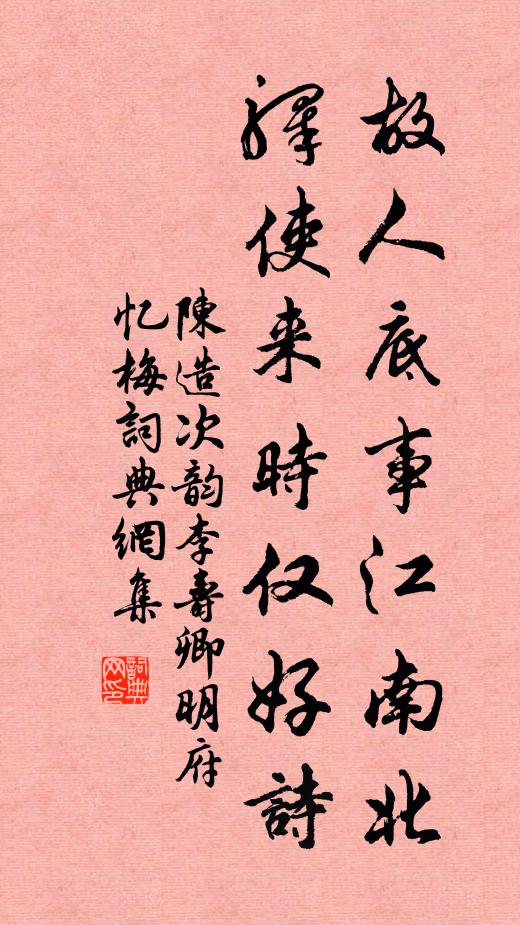 故人底事江南北
驛使来時仅好詩
陳造次韵李壽卿明府
忆梅詞典網集
詞典网印